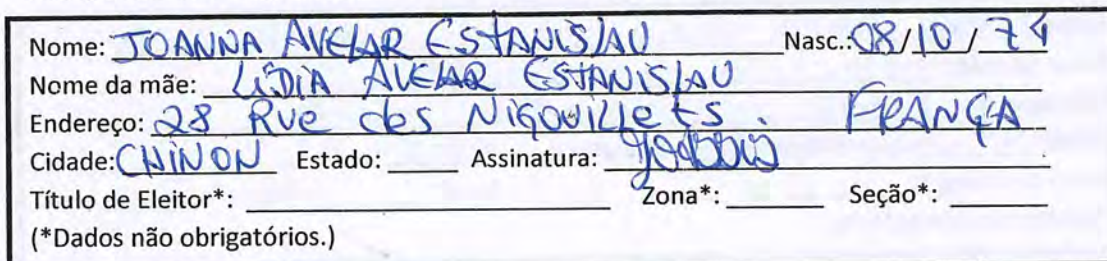 Nome: JOANNA AVELAR ESTANISLAU Nasc.: 08/10/74
Nome da mãe: LÍDIA AVELAR ESTANISLAU
Endereço: 28 Rue des Nigouillets. FRANÇA
Cidade: CHINON Estado: Assinatura:
Título de Eleitor*: Zona*: Seção*:
(*Dados não obrigatórios.)